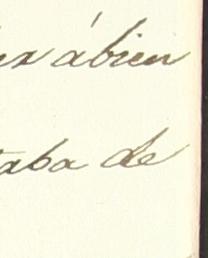 er ábien
taba de